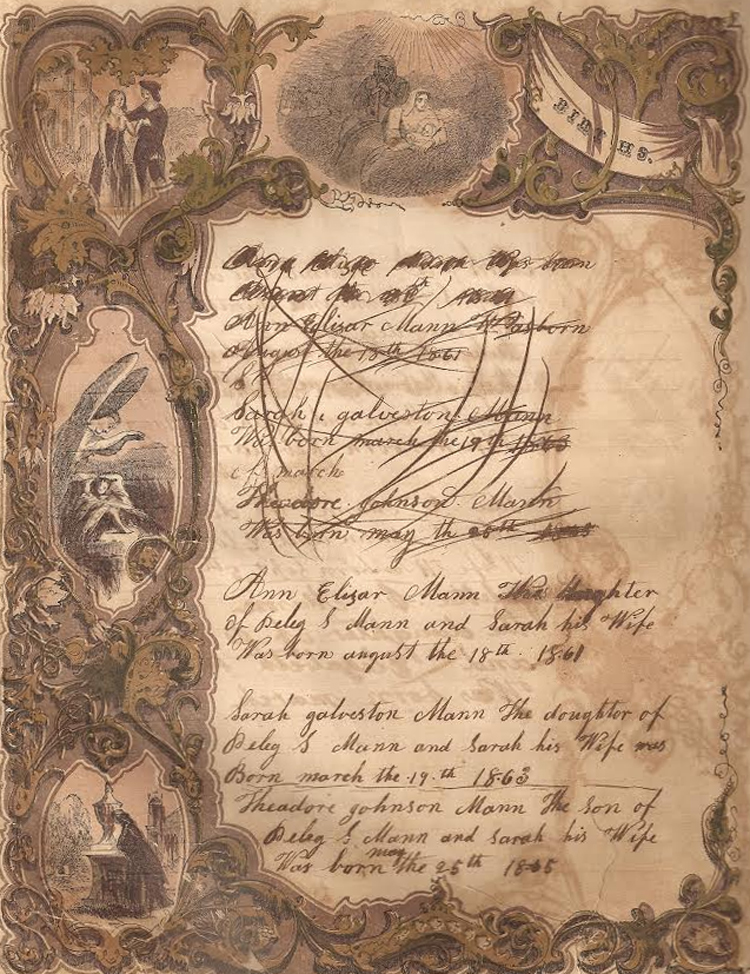 BIRTHS.
Was born
Ann Elizar Mann Was born
August the 18th 1861
Sarah galveston Mann
Was born march the 19th 1863
of march
Theadore Johnson Mann
Was born may th 25th
Ann Elizar Mann The daughter
of Peleg S Mann and Sarah his Wife
Was born august the 18th 1861
Sarah galveston Mann The doughter of
Peleg S Mann and Sarah his Wife was
Born march the 19.th 1863
Theadore Johnson Mann The son of
Peleg S Mann and Sarah his Wife
may
Was born the 25th 1865